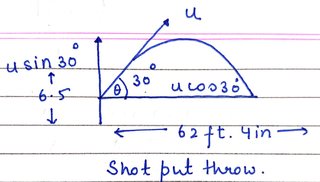 u
u sin 30°
6.5
θ
30°
u cos 30°
62 ft. 4 in
Shot put throw.